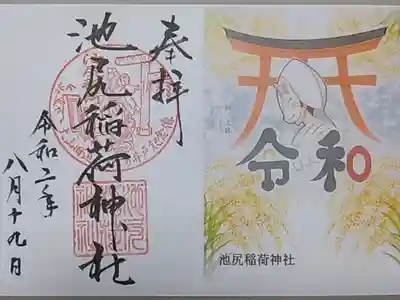 奉拝
池尻稲荷神社
令和二年
八月十九日
令和
池尻稲荷神社